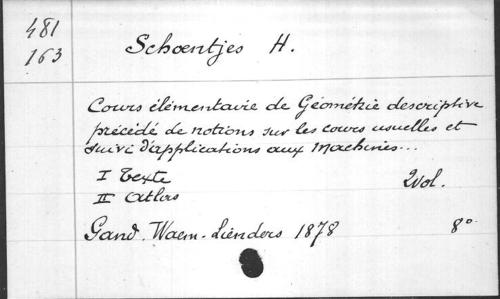 481
163
Schoentjes H.
Cours élémentaire de Géométrie descriptive
précédé de notions sur les cours usuelles et
suivi d'applications aux Machines...
I Texte 2 vol.
II Atlas
Gand. Waem-Lienders 1878 8°